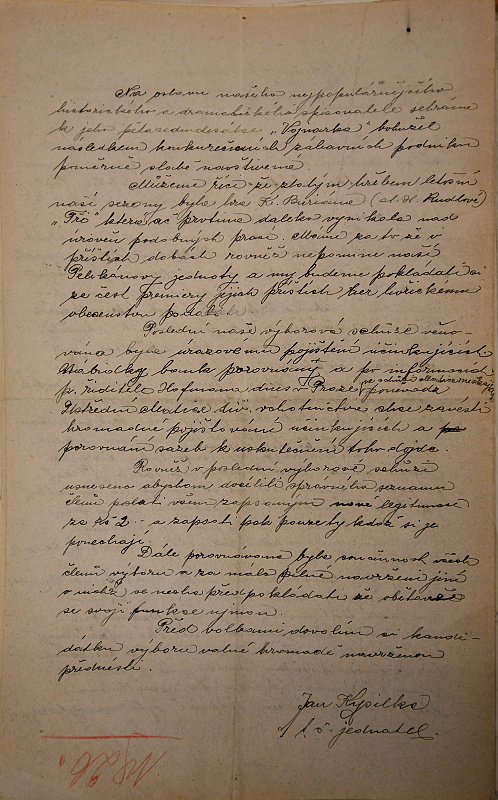 Na oslavu našeho nejpopulárnějšího
historického a dramatického spisovatele sehráno
k jeho pětasedmdesátce „Vojnarka" bohužel
následkem konkurečních zábavních podniků
poměrně slabě navštívená.
Můžeme říci že zlatým hřebem letošní
naší sezony byla hra K. Buriana (al. H. Rudlové)
„Tři" která ač prvotina daleko vynikala nad
úroveň podobných prací. Máme za to že v
příštích dobách rovněž nepomine naší
Pelikánovy jednoty a my budeme pokládati si
za čest premiery jejich příštích her hořickému
obecenstvu podati.
Poslední naše výborová schůze věno-
vána byla úrazovému pojištění účinkujících
Nabídky bank porovnány a po informaci
p. ředitele Hofmana dnes v Praze poněvadž
Ústřední Matice div. ochotnictva chce zavésti
hromadné pojišťování účinkujících a
porovnání sazeb k uskutečnění toho dojde.
Rovněž v poslední výborové schůzi
usneseno abychom docílili správného seznamu
členů podati všem zapsaným nové legitimace
za Kč 2.- a zapsati pak pouze ty kdož si je
ponechají.
Dále porovnávána byla součinnost všech
členů výboru a za málo pilné navrženi jiní
o nichž se nechá předpokládati že
se svojí funkce ujmou.
Před volbami dovolím si kandi-
dátku výboru valné hromadě navrženou
přednésti.
Jan Kypilka
t. č. jednatel.